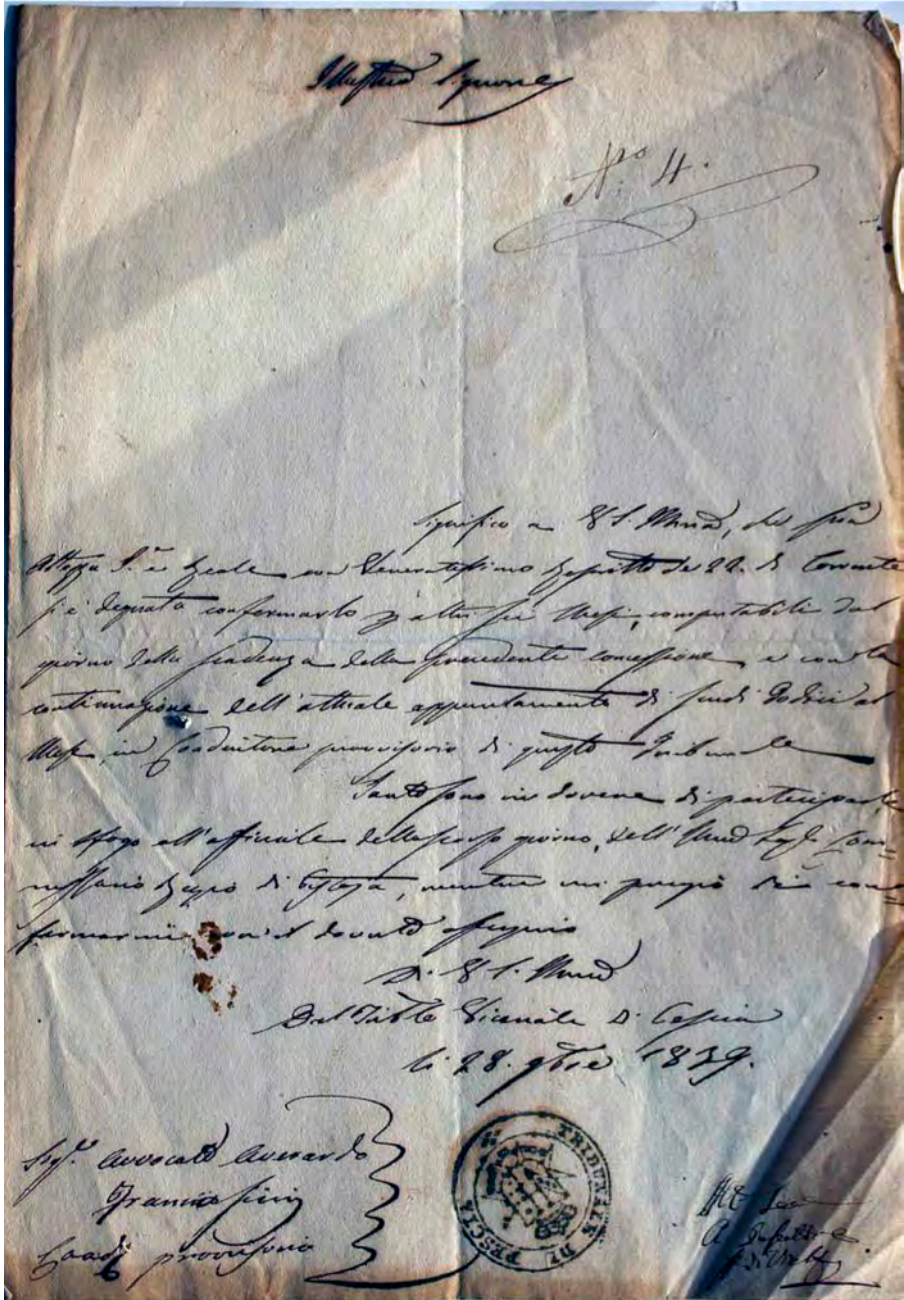 Illustre Signore
N.ro 4.
Significo a V. S. Illma, che Sua
Altezza I. e Reale con Veneratissimo Rescritto de 22. del Corrente
si è degnata confermarlo p altri sei Mesi, computabili dal
giorno della scadenza della precedente concessione e con la
continuazione dell'attuale appuntamento di scudi dodici al
Mese in Coadiutore provvisorio di questo Tribunale
Tanto sono in dovere di partecipare
in sfogo all'officiale dello scorso giorno, dell' Com=
missario Regio di, mentre mi pregio di con=
fermarmi con il dovuto ossequio
Di V. S. Illma
Dal Tible Vicariale di Pescia
li 28. 9bre 1839.
Sigr. Avvocato Averardo
Coad. provvisorio
TRIBUNALE DI PESCIA